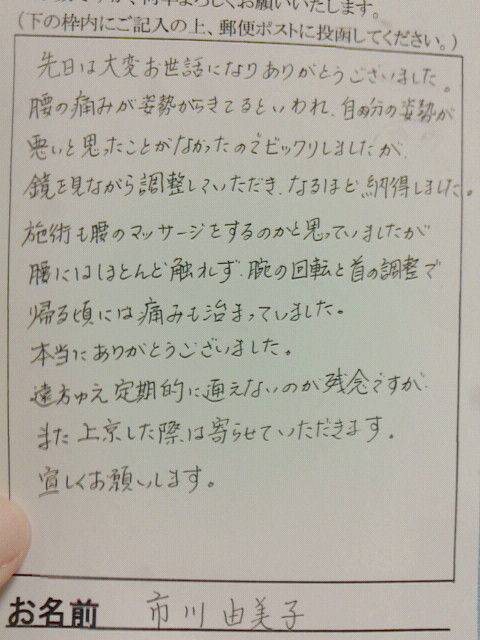 何卒よろしくお願いいたします。
(下の枠内にご記入の上、郵便ポストに投函してください。)
先日は大変お世話になりありがとうございました。
腰の痛みが姿勢からきてるといわれ、自分の姿勢が
悪いと思ったことがなかったのでビックリしましたが、
鏡を見ながら調整していただき、なるほど納得しました。
施術も腰のマッサージをするのかと思っていましたが
腰にはほとんど触れず、腕の回転と首の調整で
帰る頃には痛みも治まっていました。
本当にありがとうございました。
遠方ゆえ定期的に通えないのが残念ですが、
また上京した際は寄らせていただきます。
宜しくお願いします。
お名前 市川由美子